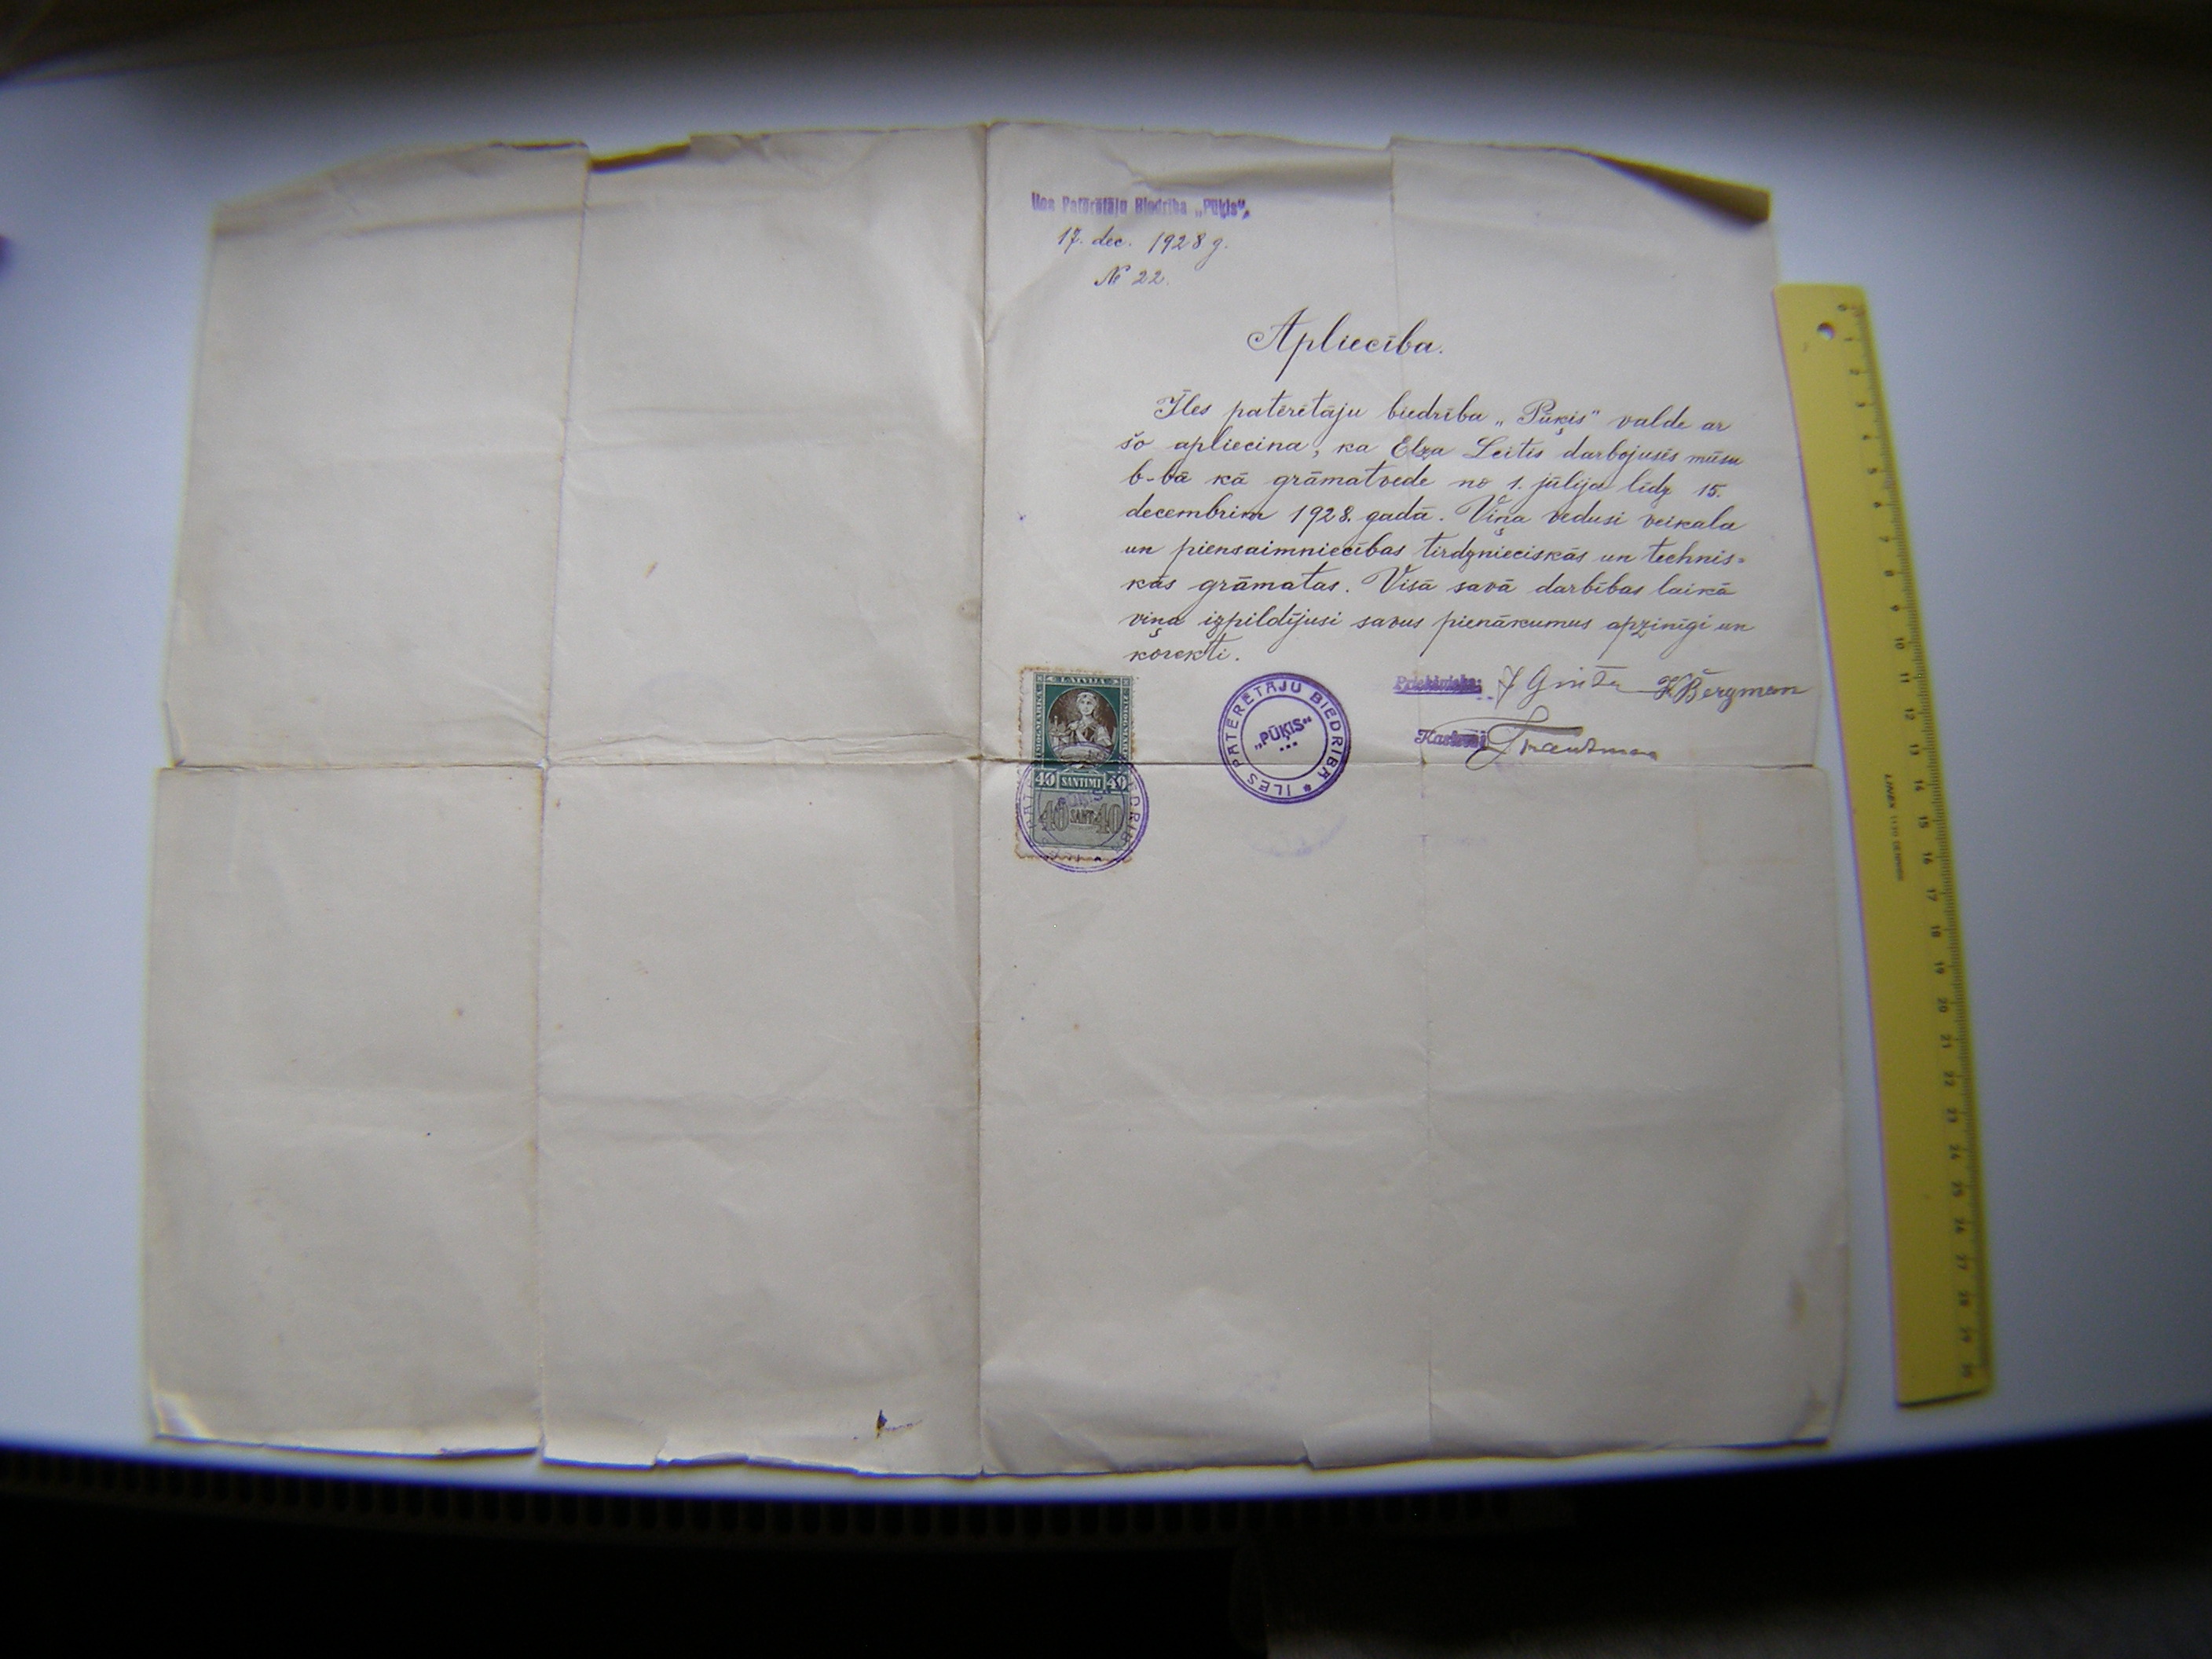 Iles Patērētāju Biedrība „Pūķis“,
17. dec. 1928 g.
№ 22.
Apliecība.
Īles patērētāju biedrība „Pūķis" valde ar
šo apliecina, ka Elza Leitis darbojusēs mūsu
b-bā kā grāmatvede no 1. jūlija līdz 15.
decembrim 1928. gadā. Viņa vedusi veikala
un piensaimniecības tirdznieciskās un technis=
kās grāmatas. Visā savā darbības laikā
viņa izpildījusi savus pienākumus apzinīgi un
korekti.
Priekšnieks: K Bergman
LATVIJA
40 SANTIMI 40
40 SANT. 40
ILES PATĒRĒTĀJU BIEDRĪBA
„PŪĶIS“
LINEX 1130 DENMARK
0 1 2 3 4 5 6 7 8 9 10 11 12 13 14 15 16 17 18 19 20 21 22 23 24 25 26 27 28 29 30